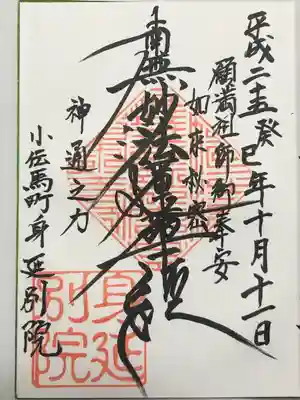 平成二十五癸巳年十月十一日
願満祖師御奉安
如来秘密
南無妙法蓮華経
神通之力
小伝馬町身延別院
身延
別院